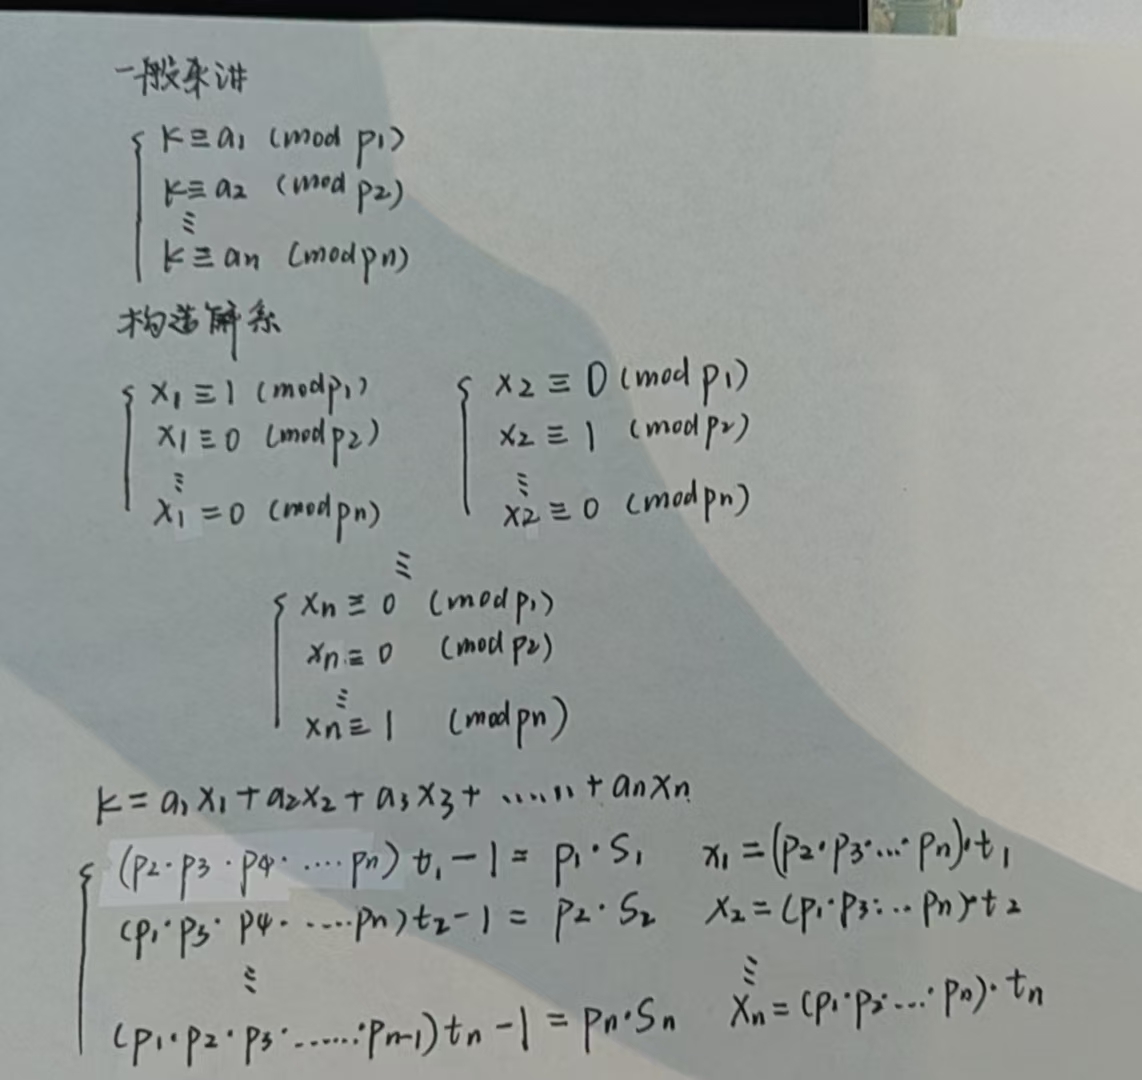 一般来讲
k≡a1 (mod p1)
k≡a2 (mod p2)
⋮
k≡an (mod pn)
构造解系
x1≡1 (mod p1)
x1≡0 (mod p2)
⋮
x1=0 (mod pn)
x2≡0 (mod p1)
x2≡1 (mod p2)
⋮
x2≡0 (mod pn)
⋮
xn≡0 (mod p1)
xn≡0 (mod p2)
⋮
xn≡1 (mod pn)
k=a1x1+a2x2+a3x3+……+anxn
(p2·p3·p4·…·pn)t1-1=p1·S1 x1=(p2·p3·…·pn)·t1
(p1·p3·p4·…·pn)t2-1=p2·S2 x2=(p1·p3·…pn)·t2
⋮ ⋮
(p1·p2·p3·……·pn-1)tn-1=pn·Sn xn=(p1·p2·…·pn)·tn